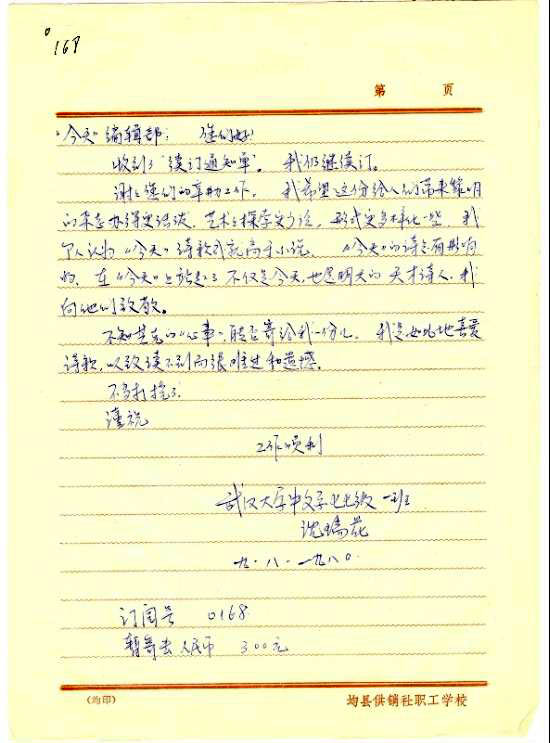 168
第 页
"今天"编辑部: 您们好!
收到了"续订通知单"。我仍继续订。
谢谢您们的辛勤工作。我希望这份给人们带来黎明
的未来办得更活泼、艺术上探学更 、形式更多样化一些。我
个人认为《今天》诗歌成就高于小说。《今天》的诗是有影响
的。在《今天》上站起了不仅是今天,也是明天的天才诗人,我
向他们致敬。
不知芒克的"心事",能否寄给我一份儿。我是如此地喜爱
诗歌,以致读不到而很难过和遗憾。
不多打扰了。
谨祝
工作顺利
武汉大学中文系七七级一班
沈瑞花
九·八·一九八〇
订阅号 0168
暂寄去人民币 3.00元
(均印)
均县供销社职工学校